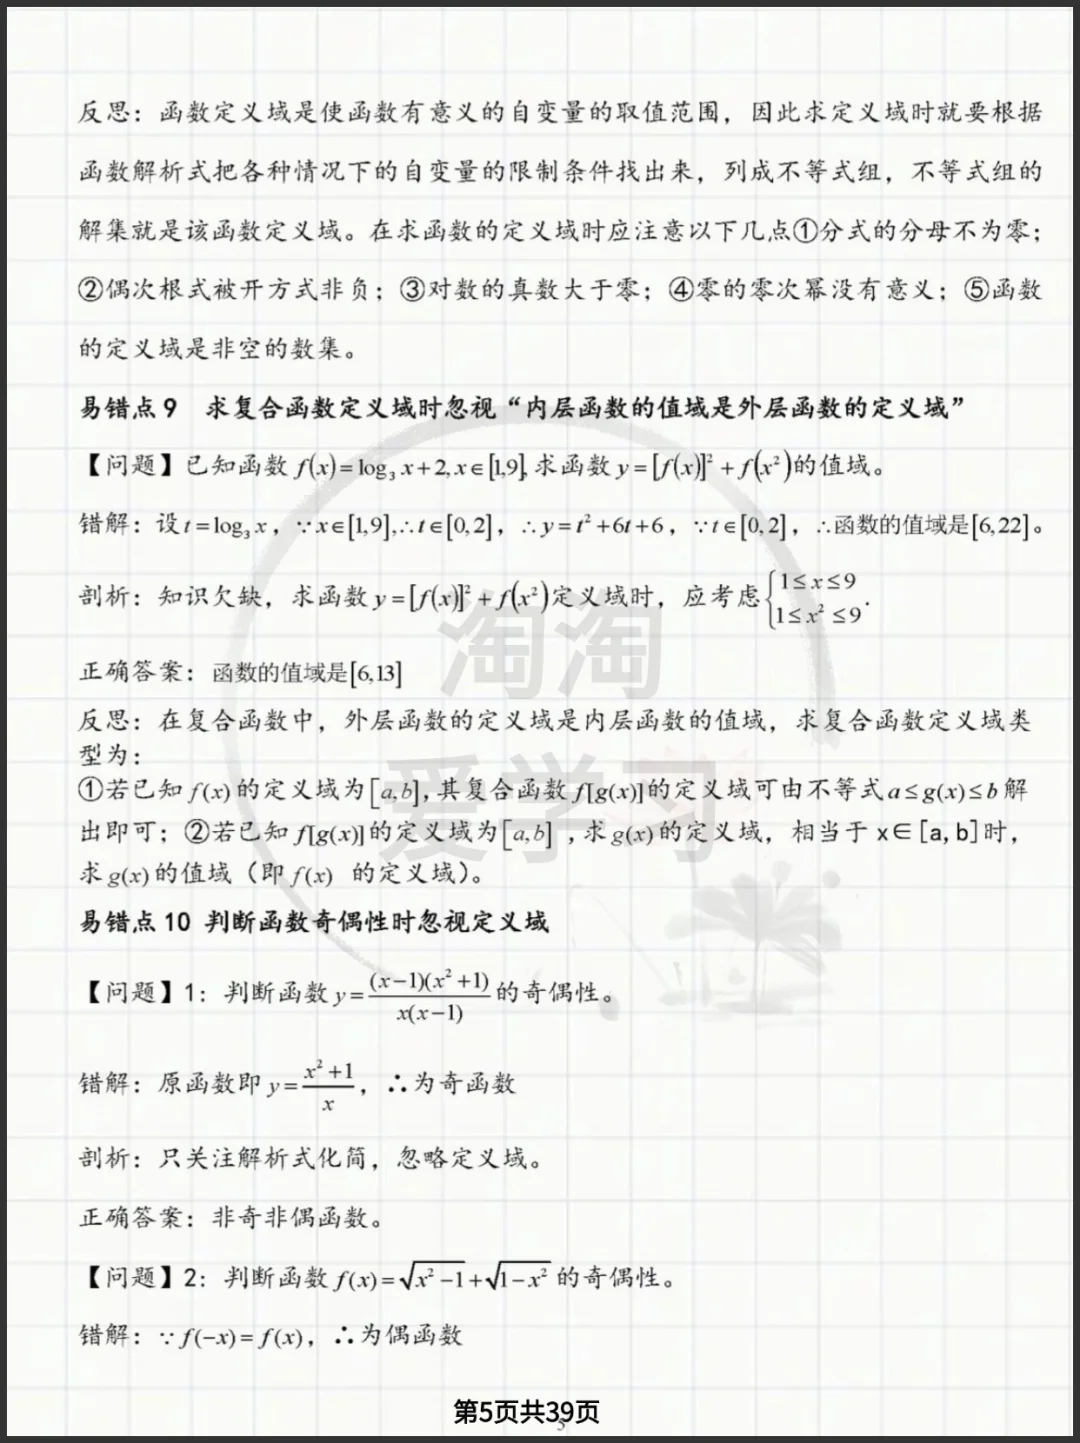 反思：函数定义域是使函数有意义的自变量的取值范围，因此求定义域时就要根据
函数解析式把各种情况下的自变量的限制条件找出来，列成不等式组，不等式组的
解集就是该函数定义域。在求函数的定义域时应注意以下几点①分式的分母不为零；
②偶次根式被开方式非负；③对数的真数大于零；④零的零次幂没有意义；⑤函数
的定义域是非空的数集。
易错点9 求复合函数定义域时忽视“内层函数的值域是外层函数的定义域”
【问题】已知函数 f(x)=log₃ x+2, x∈[1,9], 求函数 y=[f(x)]²+f(x²)的值域。
错解：设t=log₃ x，∵x∈[1,9],∴t∈[0,2]，∴y=t²+6t+6，∵t∈[0,2]，∴函数的值域是[6,22]。
剖析：知识欠缺，求函数y=[f(x)]²+f(x²)定义域时，应考虑{1≤x≤9 1≤x²≤9.
正确答案：函数的值域是[6,13]
反思：在复合函数中，外层函数的定义域是内层函数的值域，求复合函数定义域类
型为：
①若已知f(x)的定义域为[a,b],其复合函数f[g(x)]的定义域可由不等式a≤g(x)≤b解
出即可；②若已知f[g(x)]的定义域为[a,b]，求g(x)的定义域，相当于x∈[a,b]时，
求g(x)的值域（即f(x) 的定义域）。
易错点10 判断函数奇偶性时忽视定义域
【问题】1：判断函数y=(x−1)(x²+1)/x(x−1)的奇偶性。
错解：原函数即y=x²+1/x，∴为奇函数
剖析：只关注解析式化简，忽略定义域。
正确答案：非奇非偶函数。
【问题】2：判断函数f(x)=√x²−1+√1−x²的奇偶性。
错解：∵f(−x)=f(x)，∴为偶函数
淘淘
爱学习
第5页共39页
5